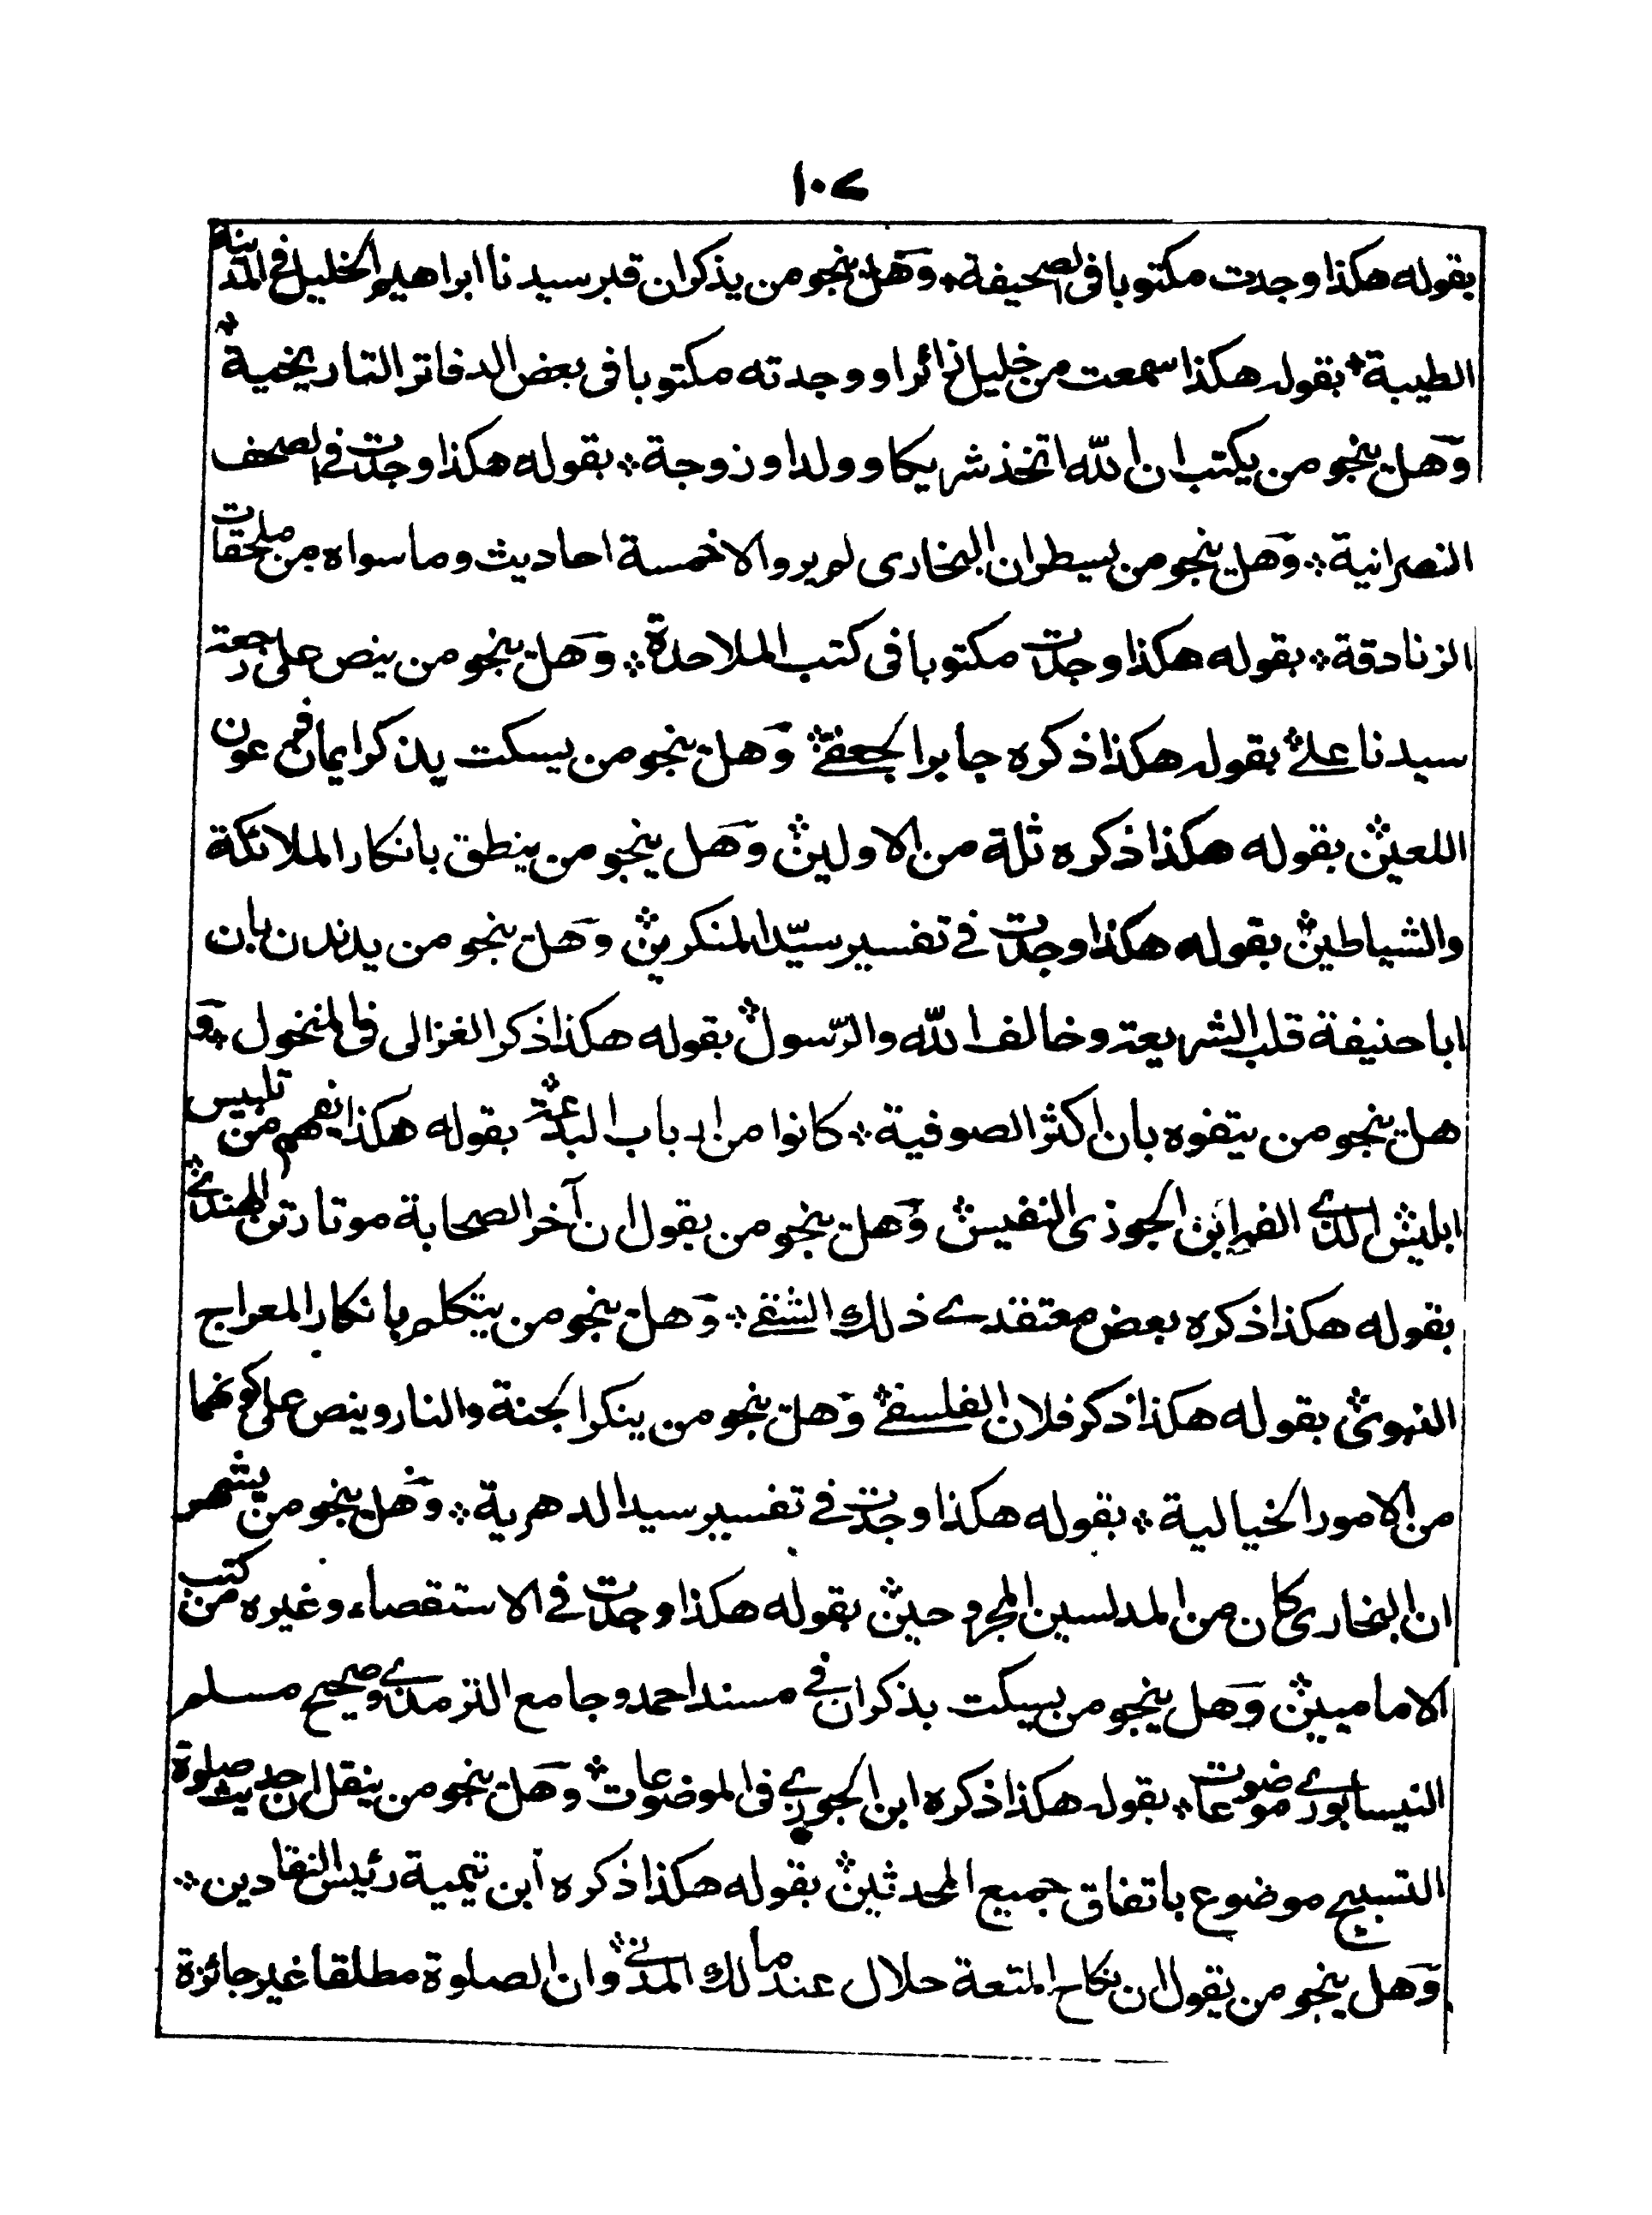 ١٠٧
بقوله هكذا وجدت مكتوبا فى الصحيفة ٭ وهل ينجو من يذكر ان قبر سيدنا ابراهيم الخليل فى المدينة
الطيبة ٭ بقوله هكذا سمعت من خليل زائرا ووجدته مكتوبا فى بعض الدفاتر التاريخية ٭
وهل ينجو من يكتب ان الله اتخذ شريكا وولدا وزوجة ٭ بقوله هكذا وجدت فى الصحف
النصرانية ٭ وهل ينجو من يسطر ان البخارى لم يرو الا خمسة احاديث وما سواه من ملحقات
الزنادقة ٭ بقوله هكذا وجدت مكتوبا فى كتب الملاحدة ٭ وهل ينجو من ينص على رجعة
سيدنا على ٭ بقوله هكذا ذكره جابر الجعفى ٭ وهل ينجو من يسكت يذكر ايمان فرعون
اللعين ٭ بقوله هكذا ذكره ثلة من الاولين ٭ وهل ينجو من ينطق بانكار الملائكة
والشياطين ٭ بقوله هكذا وجدت فى تفسير سيّد المنكرين ٭ وهل ينجو من يدندن بان
ابا حنيفة قلب الشريعة وخالف الله والرّسول ٭ بقوله هكذا ذكر الغزالى فى المنخول ٭ و
هل ينجو من يتفوه بان اكثر الصوفية ٭ كانوا من ارباب البدعة ٭ بقوله هكذا يفهم من تلبيس
ابليس ٭ الذى الفه ابن الجوزى النفيس ٭ وهل ينجو من يقول ان آخر الصحابة موتا رتن الهندى ٭
بقوله هكذا ذكره بعض معتقدى ذلك الشقى ٭ وهل ينجو من يتكلم بانكار المعراج
النبوى ٭ بقوله هكذا ذكر فلان الفلسفى ٭ وهل ينجو من ينكر الجنة والنار وينص على كونهما
من الامور الخيالية ٭ بقوله هكذا وجدت فى تفسير سيد الدهرية ٭ وهل ينجو من يشهر
ان البخارى كان من المدلسين المجروحين ٭ بقوله هكذا وجدت فى الاستقصاء وغيره من كتب
الاماميين ٭ وهل ينجو من يسكت بذكر ان فى مسند احمد وجامع الترمذى وصحيح مسلم
النيسابورى موضوعات ٭ بقوله هكذا ذكره ابن الجوزى فى الموضوعات ٭ وهل ينجو من ينقل ان حديث صلوة
التسبيح موضوع باتفاق جميع المحدثين ٭ بقوله هكذا ذكره ابن تيمية رئيس النقادين ٭
وهل ينجو من يقول ان نكاح المتعة حلال عند مالك المدنى ٭ وان الصلوة مطلقا غير جائزة